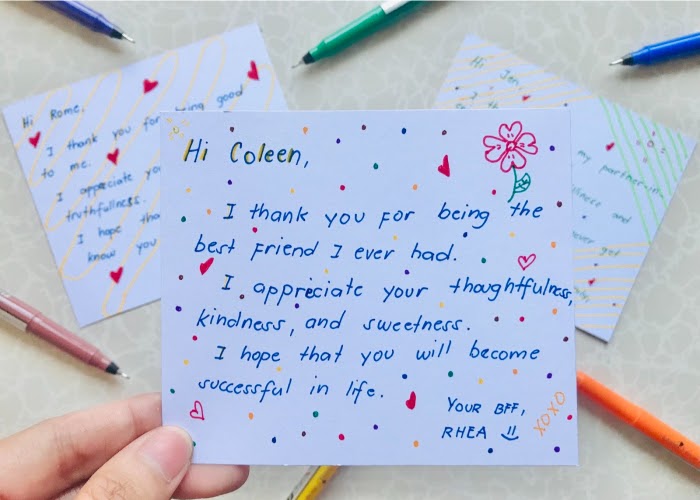 Hi Rome,
I thank you for being good
to me.
I appreciate
truthfulness.
I hope
know you
Hi
my partner-in-
and
Hi Coleen,
I thank you for being the
best friend I ever had.
I appreciate your thoughtfulness,
kindness, and sweetness.
I hope that you will become
successful in life.
YOUR BFF,
RHEA
XOXO